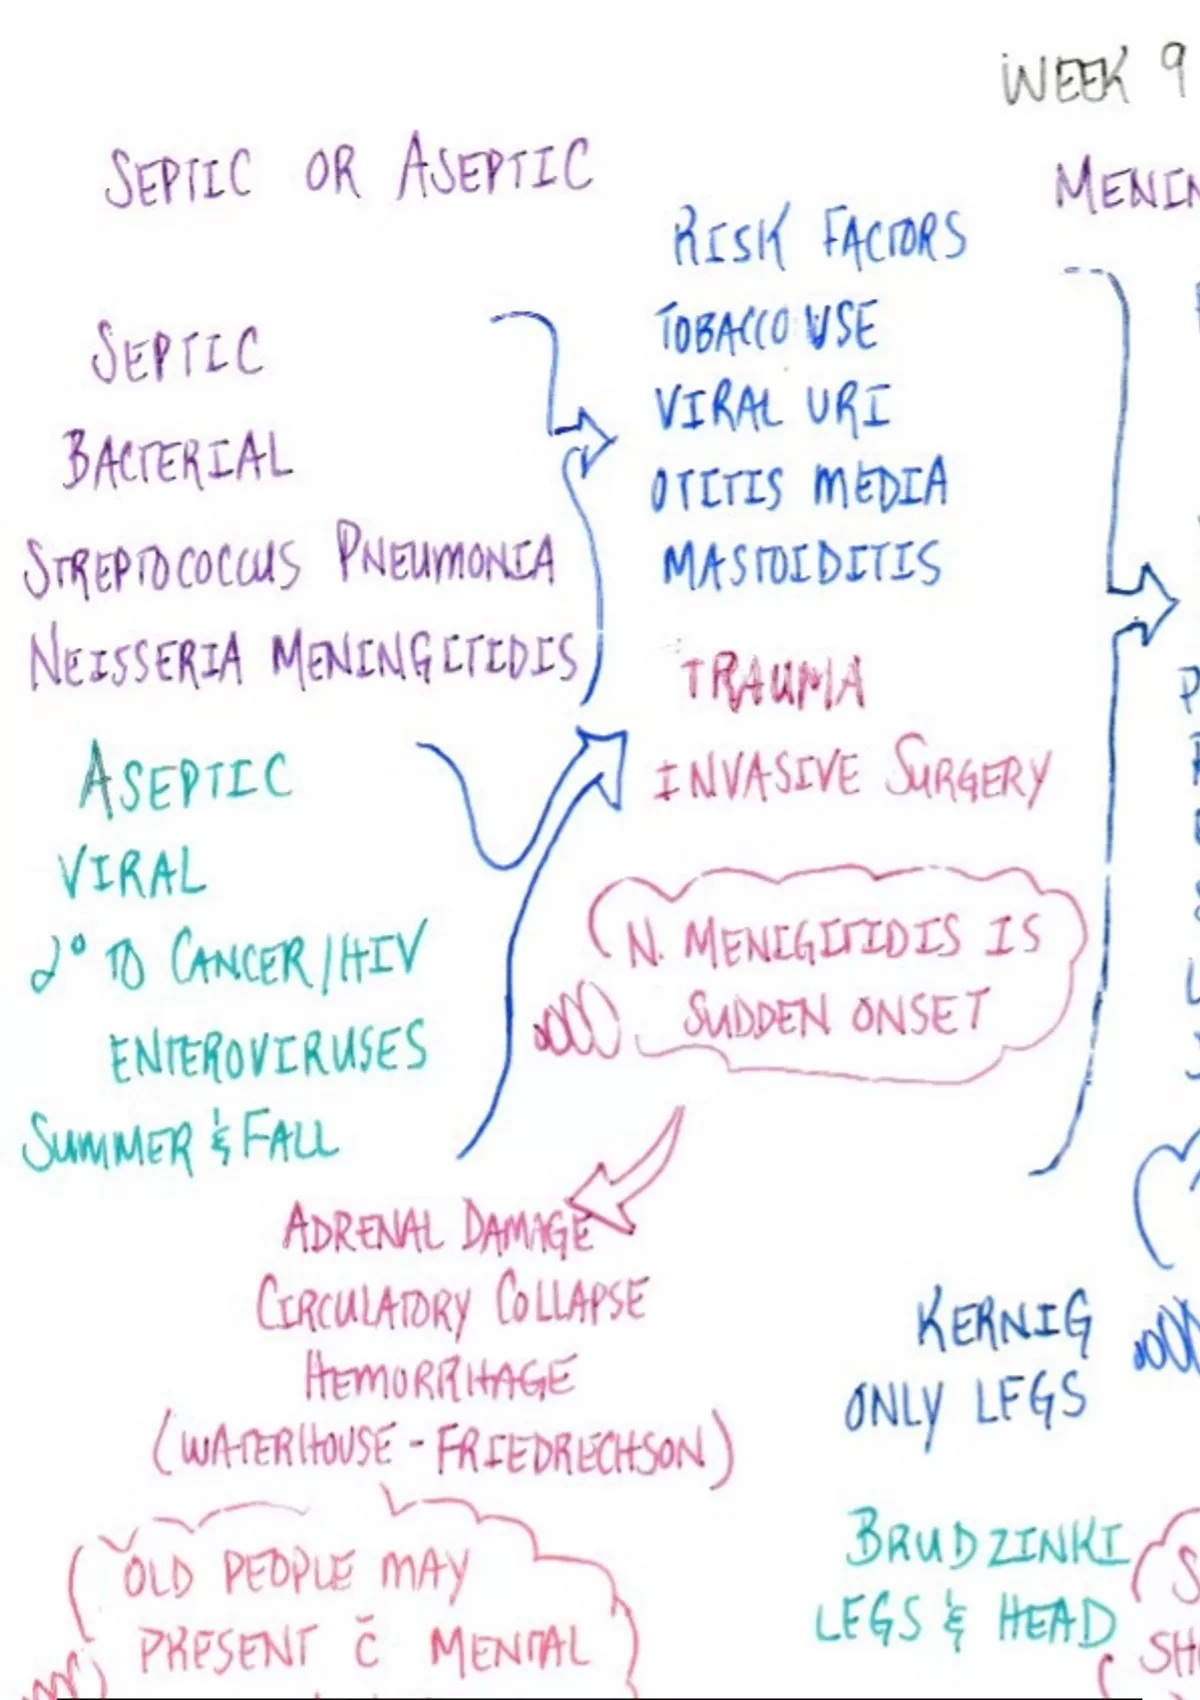 WEEK 9
SEPTIC OR ASEPTIC
SEPTIC
BACTERIAL
STREPTOCOCCUS PNEUMONIA
NEISSERIA MENINGITIDIS
ASEPTIC
VIRAL
2° TO CANCER/HIV
ENTEROVIRUSES
SUMMER & FALL
RISK FACTORS
TOBACCO USE
VIRAL URI
OTITIS MEDIA
MASTOIDITIS
TRAUMA
INVASIVE SURGERY
N. MENIGITIDIS IS
SUDDEN ONSET
ADRENAL DAMAGE
CIRCULATORY COLLAPSE
HEMORRHAGE
(WATERHOUSE-FRIEDRECHSON)
OLD PEOPLE MAY
PRESENT c̄ MENTAL
MENIN
KERNIG
ONLY LEGS
BRUDZINKI
LEGS & HEAD